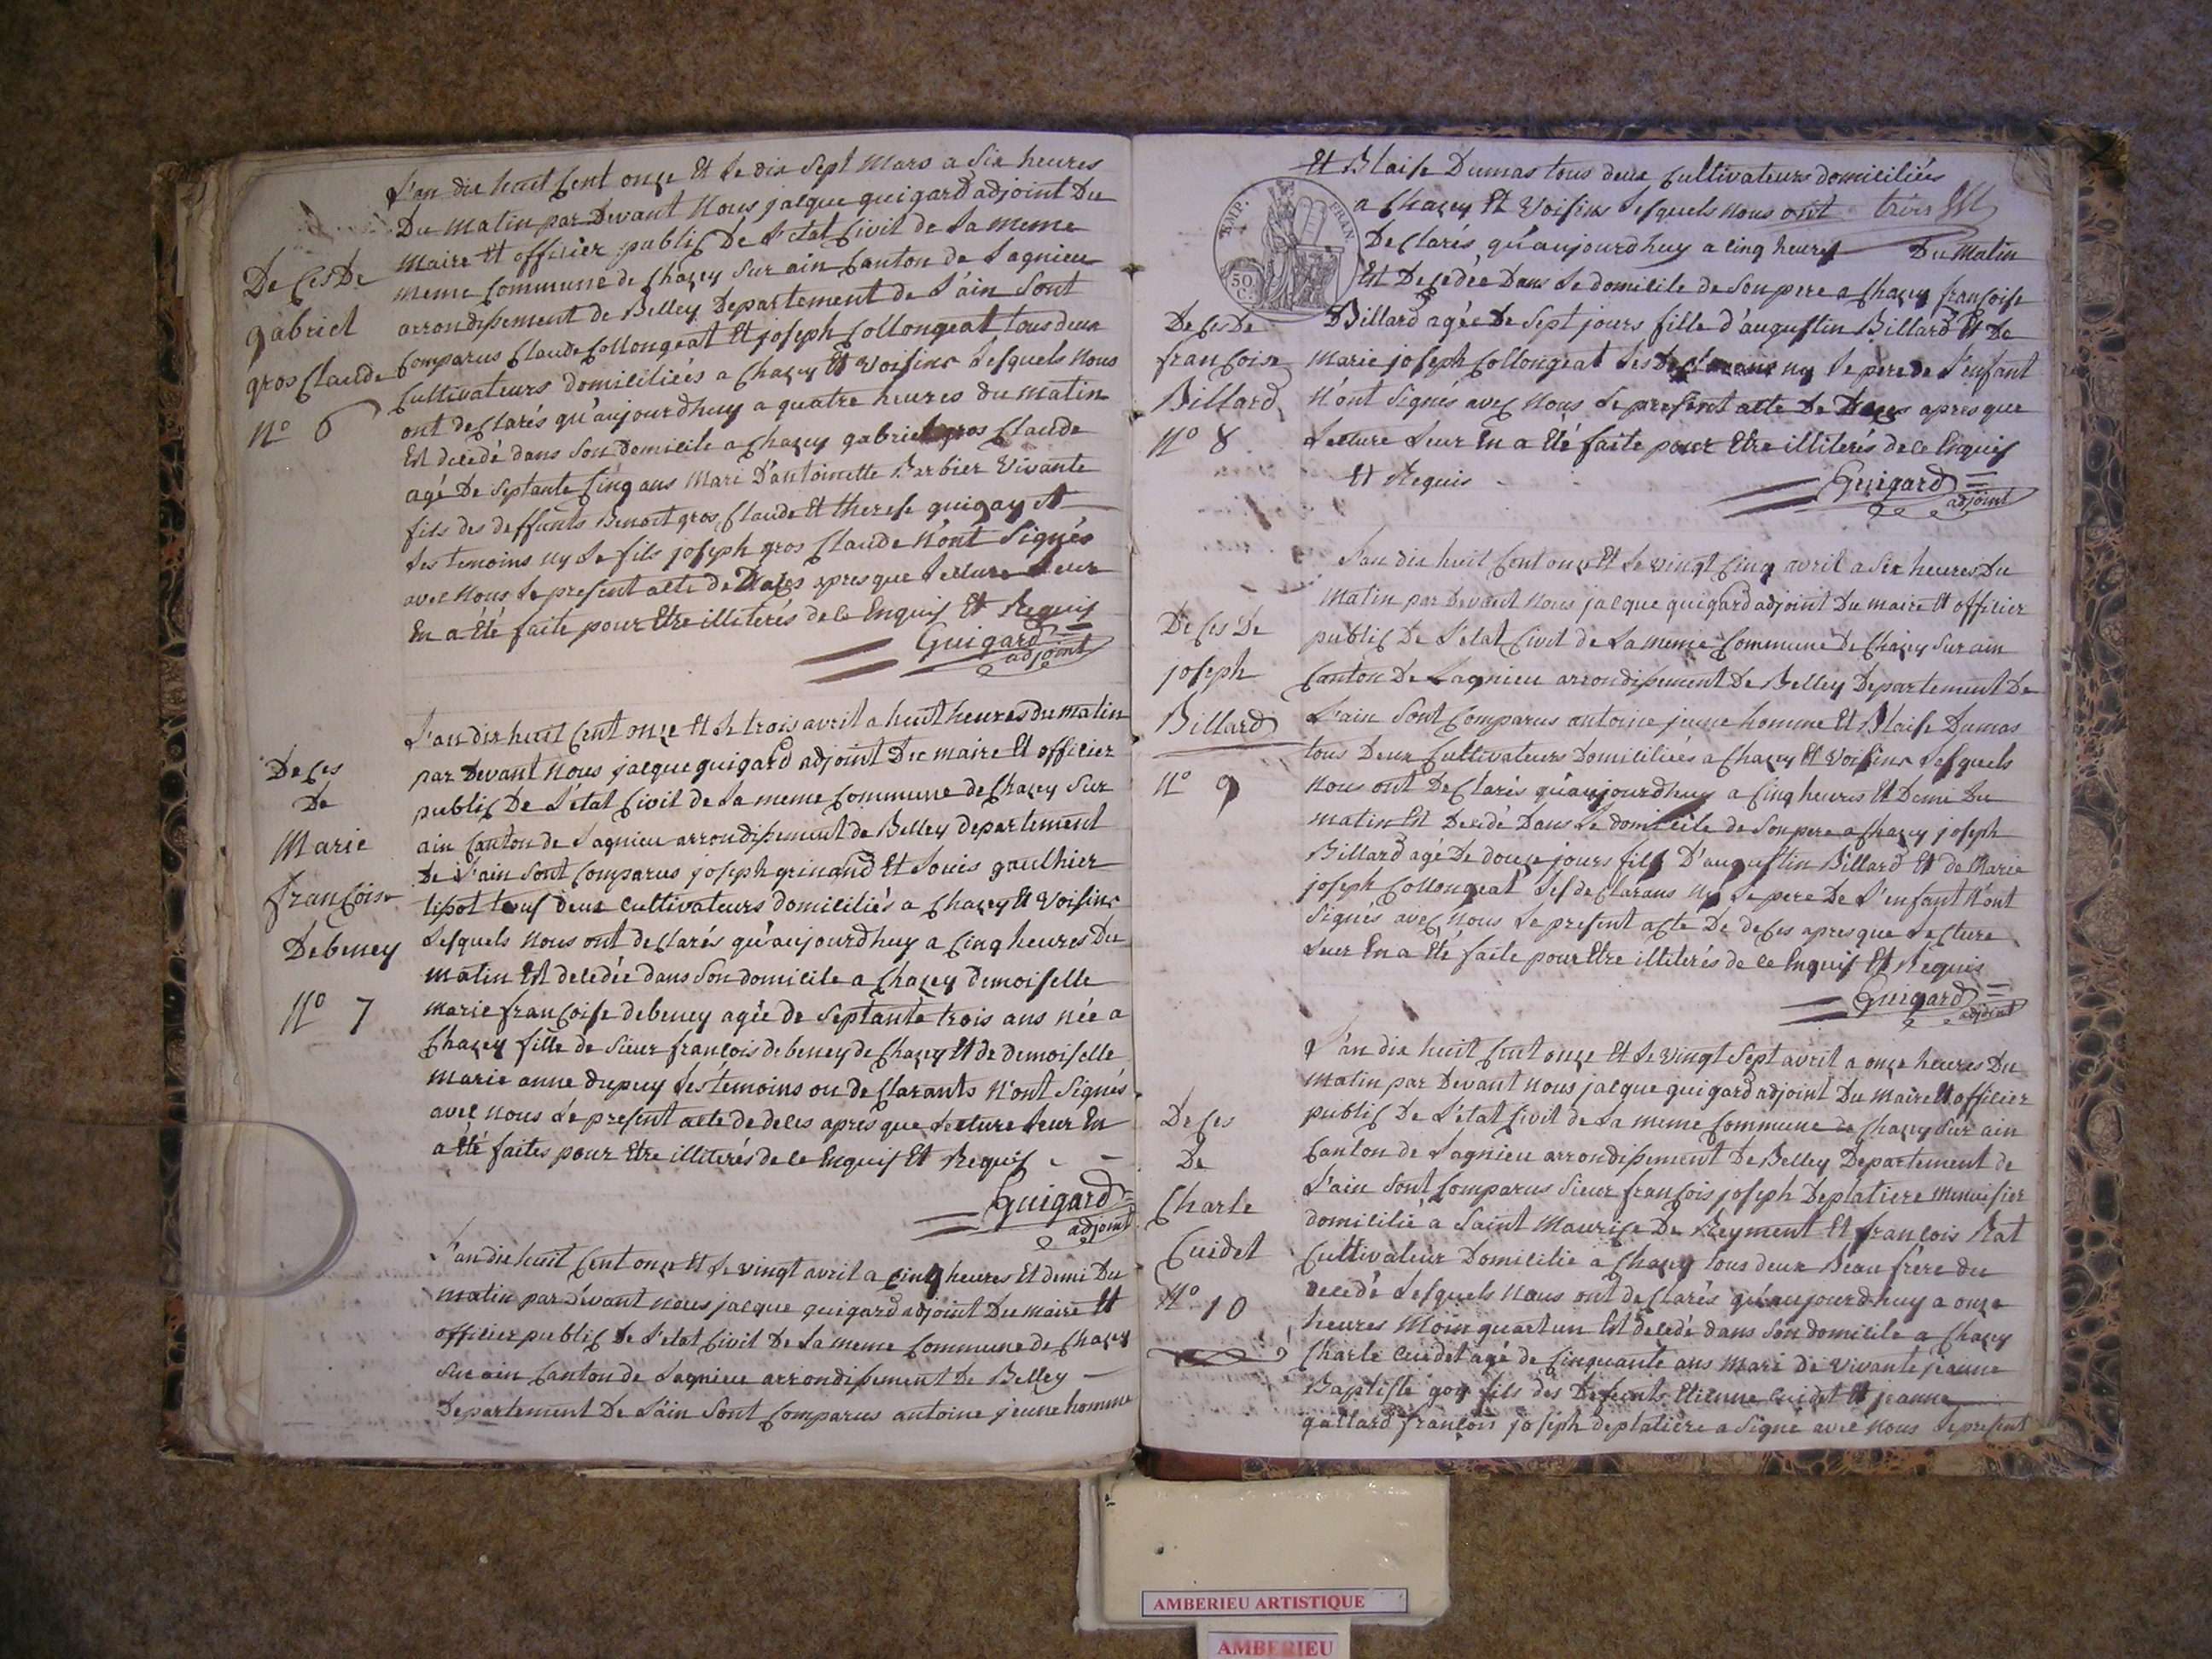 L'an dix huit Cent onze Et le dix Sept Mars a Six heures
Du Matin par Devant Nous jacque guigard adjoint Du
Maire Et officier public De L'etat Civil de la meme
meme Commune de Chazey Sur ain Canton de Lagnieu
arrondissement de Belley Departement de L'ain Sont
Comparus Claude Collongeat Et joseph Collongeat tous deux
Cultivateurs domiciliés a Chazey Et Voisins Lesquels Nous
ont declarés qu'aujourdhuy a quatre heures du matin
Est decédé dans Son Domicile a Chazey gabriel gros Claude
agé De Septante Cinq ans Mari D'antoinette Barbier Vivante
fils des deffunts Benoit gros Claude Et therese guigay
Les temoins ny Le fils joseph gros Claude N'ont Signés
avec Nous Le present acte de Deces apres que Lecture Leur
En a Eté faite pour Etre illiterés de ce Enquis Et Requis
Guigard
adjoint
Deces De
gabriel
gros Claude
N° 6
L'an dix huit Cent onze Et le trois avril a huit heures du matin
par Devant Nous jacque guigard adjoint Du maire Et officier
public De L'état Civil de La meme Commune de Chazey Sur
ain Canton de Lagnieu arrondissement de Belley departement
De L'ain Sont Comparus joseph grinand Et Louis gaulhier
tissot tous deux cultivateurs domiciliés a Chazey Et Voisins
Lesquels Nous ont declarés qu'aujourdhuy a Cinq heures Du
matin Est decedée dans Son domicile a Chazey demoiselle
marie françoise debeney agée de Septante trois ans née a
Chazey fille de Sieur francois debeney de Chazey Et de demoiselle
marie anne dupuy Les temoins ou declarants N'ont Signés
avec nous Le present acte de deces apres que Lecture Leur En
a Eté faites pour Etre illiterés de ce Enquis Et Requis
Guigard
adjoint
Deces
De
Marie
françoise
Debeney
N° 7
L'an dix huit Cent onze Et Le vingt avril a Cinq heures Et demi Du
matin par devant nous jacque guigard adjoint Du maire Et
officier public De L'etat Civil De La meme Commune de Chazey
Sur ain Canton de Lagnieu arrondissement De Belley
Departement De L'ain Sont Comparus antoine jeune homme
Et Blaise Dumas tous deux Cultivateurs domiciliées
a Chazey Et Voisins Lesquels Nous ont trois
Declarés qu'aujourdhuy a Cinq heures Du Matin
Est Decedée Dans Le domicile de Son pere a Chazey françoise
Billard agée De Sept jours fille d'augustin Billard Et De
Marie joseph Collongeat Les Declarans ny Le pere de L'enfant
N'ont Signés avec Nous Le present acte De Deces apres que
Lecture Leur En a Eté faite pour Etre illiterés de ce Enquis
Et Requis
Guigard
adjoint
EMP. FRAN.
50 C.
Deces De
françoise
Billard
N° 8
L'an dix huit Cent onze Et Le vingt Cinq avril a Six heures Du
Matin par Devant Nous jacque guigard adjoint Du maire Et officier
public De L'etat Civil de La meme Commune De Chazey Sur ain
Canton De Lagnieu arrondissement De Belley Departement De
L'ain Sont Comparus antoine jeune homme Et Blaise Dumas
tous Deux Cultivateurs Domiciliées a Chazey Et Voisins Lesquels
Nous ont Declarés qu'aujourdhuy a Cinq heures Et Demi Du
matin Est Decédé Dans Le domicile de Son pere a Chazey joseph
Billard agé De douze jours fils D'augustin Billard Et de Marie
joseph Collongeat Les declarans ny Le pere De L'enfant N'ont
Signés avec Nous Le present acte De deces apres que Lecture
Leur En a Eté faite pour Etre illiterés de ce Enquis Et Requis
Guigard
adjoint
Deces De
joseph
Billard
N° 9
L'an dix huit Cent onze Et Le vingt Sept avril a onze heures Du
matin par Devant Nous jacque guigard adjoint Du maire Et officier
public De L'état Civil de La meme Commune de Chazey Sur ain
Canton de Lagnieu arrondissement De Belley Departement de
L'ain Sont Comparus Sieur françois joseph Deplatiere Menuisier
domicilié a Saint Maurice De Reyment Et françois Rat
Cultivateur Domicilié a Chazey tous deux Beau frère du
decedé Lesquels Nous ont declarés qu'aujourdhuy a onze
heures Moin quart un Est decedé dans Son domicile a Chazey
Charle Cuidet agé de Cinquante ans Mari de vivante jeanne
Baptiste goy fils des Defunts Etienne Cuidet Et jeanne
gallard françois joseph deplatiere a Signe avec Nous Le present
Deces
De
Charle
Cuidet
N° 10
AMBERIEU ARTISTIQUE
AMBERIEU